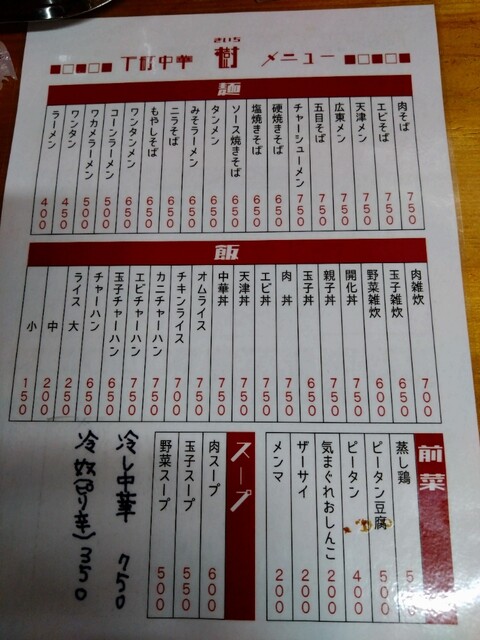 下町中華 樹 メニュー
麺
肉そば 750
エビそば 750
天津メン 750
広東メン 750
五目そば 750
チャーシューメン 750
硬焼きそば 650
塩焼きそば 650
ソース焼きそば 650
タンメン 650
みそラーメン 650
ニラそば 650
もやしそば 650
ワンタンメン 650
コーンラーメン 500
ワカメラーメン 500
ワンタン 450
ラーメン 400
飯
肉雑炊 700
玉子雑炊 650
野菜雑炊 600
開化丼 750
親子丼 750
玉子丼 650
肉丼 750
エビ丼 750
天津丼 750
中華丼 750
オムライス 750
チキンライス 700
カニチャーハン 750
エビチャーハン 750
玉子チャーハン 650
チャーハン 650
ライス 大 250
中 200
小 150
前菜
蒸し鶏
ピータン豆腐 500
ピータン 400
気まぐれおしんこ 200
ザーサイ 200
メンマ 200
スープ
肉スープ 600
玉子スープ 550
野菜スープ 500
冷し中華 750
冷奴(ピリ辛) 350